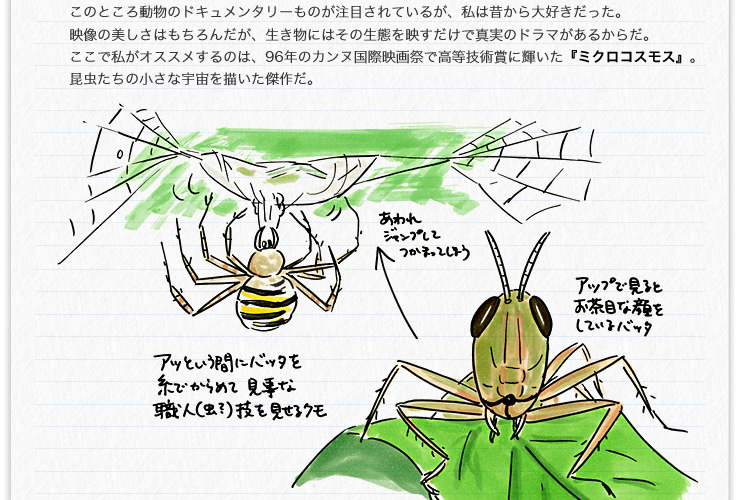 このところ動物のドキュメンタリーものが注目されているが、私は昔から大好きだった。
映像の美しさはもちろんだが、生き物にはその生態を映すだけで真実のドラマがあるからだ。
ここで私がオススメするのは、96年のカンヌ国際映画祭で高等技術賞に輝いた『ミクロコスモス』。
昆虫たちの小さな宇宙を描いた傑作だ。
あわれ
ジャンプして
つかまってしまう
アップで見ると
お茶目な顔を
しているバッタ
アッという間にバッタを
糸でからめて 見事な
職人(虫?)技を見せるクモ